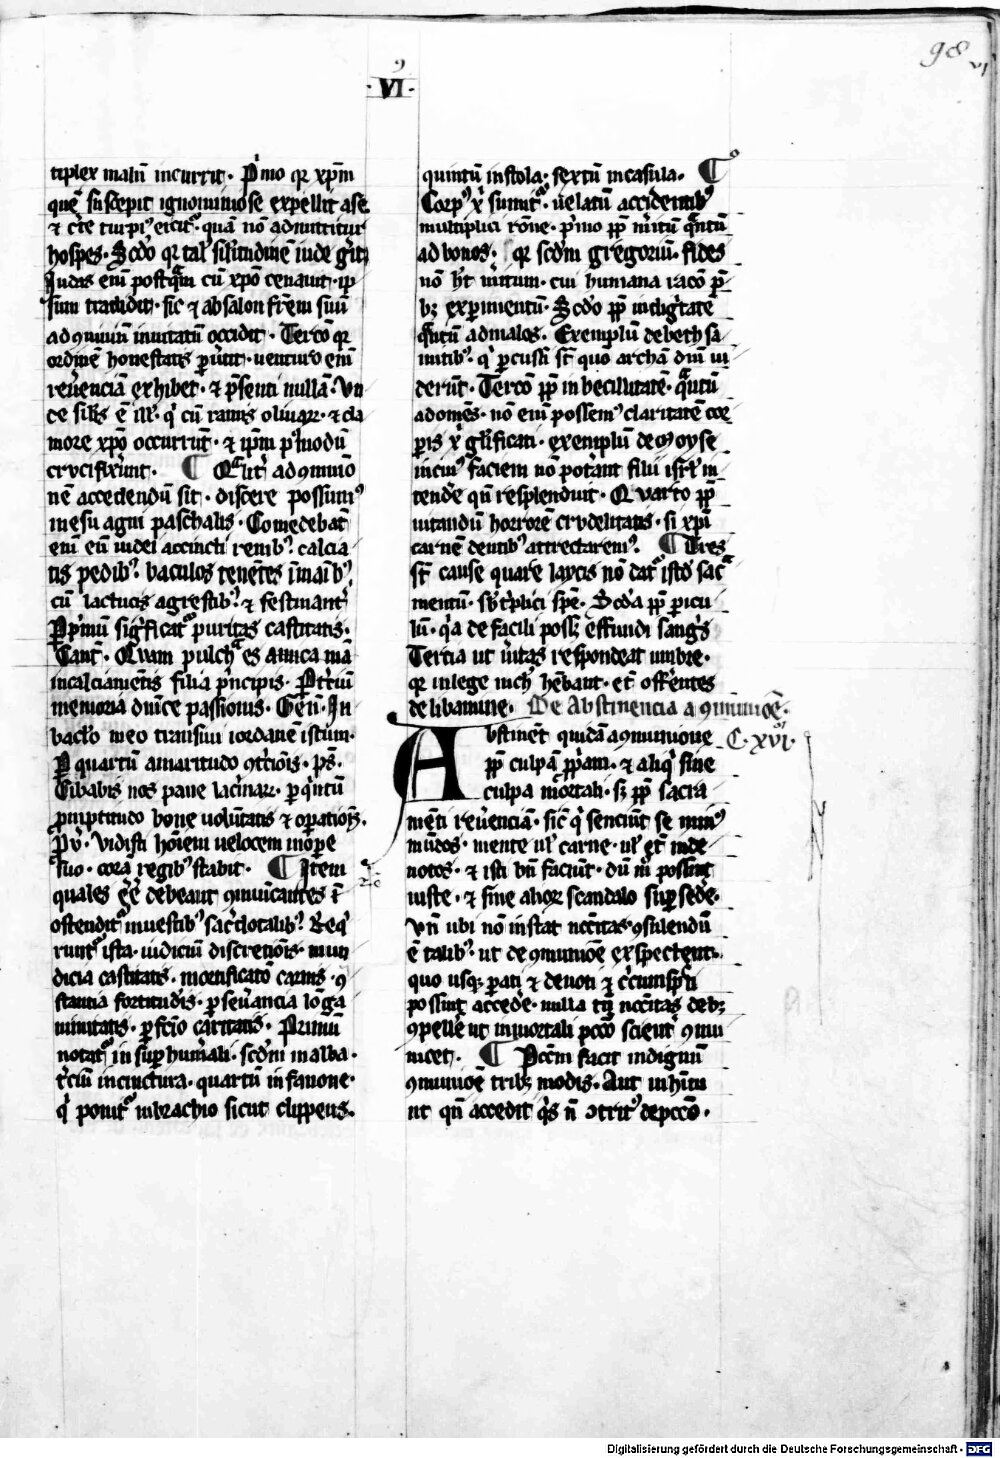 98
VI
·VI·
tiplex malū incurrit· P̄mo qꝛ xp̄m
quē suscepit ignominiose expellit a se
⁊ c̄te turpiꝰ eicit᷑· quā nō admittitur
hospes· Scdo qꝛ tal' sil'itudinē iude gerit
Iudas eni postq̄m cū xp̄o cenauit· ip̄
sum tradidit· sic ⁊ absalon fr̄em suū
ad ꝯuiuiū inuitatū occidit· Tercō qꝛ
ordinē honestatis ꝑuertit· venturo eni
reuerenciā exhibet· ⁊ p̄senti nullā· Vn
de sil'is ē ill'· q' cū ramis oliuaꝝ· ⁊ cla
more xp̄o occurrūt· ⁊ ip̄m p'modū
crucifixerūt· ¶ Qual'it' ad ꝯmunio
nē accedendū sit· discere possumꝰ
in esu agni paschalis· Comedebāt
eni eū iudei accincti renibꝰ· calcia
tis pedibꝰ· baculos tenētes ī manibꝰ·
cū lactucis agrestibꝰ· ⁊ festinant'
Ꝑ p'mū significat᷑ puritas castitatis·
Cant̄· Quam pulch̄ es amica mā
in calciamētis filia p'ncipis· Ꝑ t'ciū
memoria dn̄ice passionis· Gen̄· In
baclo meo transiui iordanē istum·
Ꝑ quartū amaritudo ꝯt'cōis· ps̄·
Cibabis nos pane lacrimaꝝ· ꝑ q'ntū
prūptitudo bone uolūtatis ⁊ oꝑationis·
Pv̄· Vidisti hoīem uelocem in oꝑe
suo· corā regibꝰ stabit· ¶ Item
quales eē debeant ꝯmunicantes ī
ostendit᷑ in uestibꝰ sac'dotalibꝰ· Req'
runt᷑ ista· iudiciū discretiōis· mun
dicia castitatis· mortificatō carnis· ꝯ
stantia fortitudīs· ꝑseuerancia longa
nimitatis· ꝑfectio caritatis· Primū
notat᷑ in suꝑhumerali· scdm in alba·
t'ciū in cinctura· quartū in fanone·
q' ponit᷑ in brachio sicut clippeus·
quintū in stola· sextū in casula· ¶
Corpꝰ x' sumit᷑· uelatū accidentibꝰ
multiplici rōne· p'mo ꝓp̄ m'itū q̄ntū
ad bonos· qꝛ scdm gregoriū· fides
nō h't m'itum· cui humana racō p̄
bꝫ experimentū· Scdo ꝓp̄ indig'tatē
q̄ntū ad malos· Exemplū de bethsa
mitibꝰ· q' ꝑcussi st̄ quo archā dn̄i ui
derūt· Tercō ꝓp̄ inbecillitatē· q̄ntū
ad omēs· nō eni possemꝰ claritatē cor
poris x' gl'ificati· exemplū de Moyse
in cuiꝰ faciem nō pot'ant filii isrl' in
tendere qn̄ resplenduit· Quarto ꝓp̄
uitandū horrorē crudelitatis· si xp̄i
carnē dentibꝰ attrectaremꝰ· ¶ Tres
st̄ cause quare laycis nō dat᷑ istd' sac̄
mentum· sb' t'plici spē· Scd'a ꝓp̄ ꝑicu
lū· q'a de facili posset effundi sang's
Tercia ut v'itas respondeat umbre·
qꝛ in lege nich' hēbant· et̄ offerentes
de libamine· De Abstinencia a ꝯmuniōe· C· xvi·
Abstinēt quidā a ꝯmunione
ꝓp̄ culpā ꝓp̄am· ⁊ aliq' sine
culpa mortali· sꝫ ꝓp̄ sacra
mēti reuerenciā· sic' q' senciūt se min'
mūdos· mente ul' carne· ul' et̄ inde
uotos· ⁊ isti bn̄ faciūt· dū m̄ possint
iuste· ⁊ sine alioꝝ scandalo suꝑsedere·
Vn̄ ubi nō instat necc̄itas· ꝯsulendū
ē talibꝰ· ut de ꝯmuniōe exspectent·
quo usqꝫ parati ⁊ deuoti ⁊ c'cumspecti
possint accedere· nulla tn̄ necc̄itas debꝫ
ꝯpellere ut in mortali pccō scient' ꝯmu
nicet· ¶ Pccm̄ facit indignū
ꝯmuniōe tribꝫ modis· Aut inh'itū
ut qn̄ accedit q's n̄ ꝯtritꝰ de pccō·
Digitalisierung gefördert durch die Deutsche Forschungsgemeinschaft - DFG